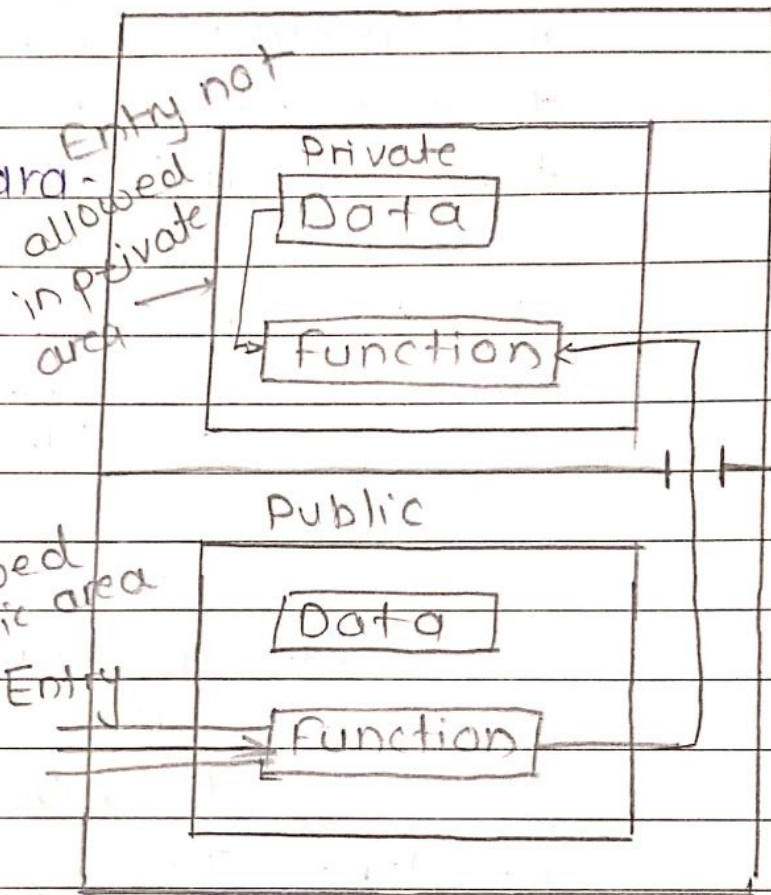 Entry not
allowed
in private
area
ara-
Private
Data
function
Public
ic area
Entry
Data
function